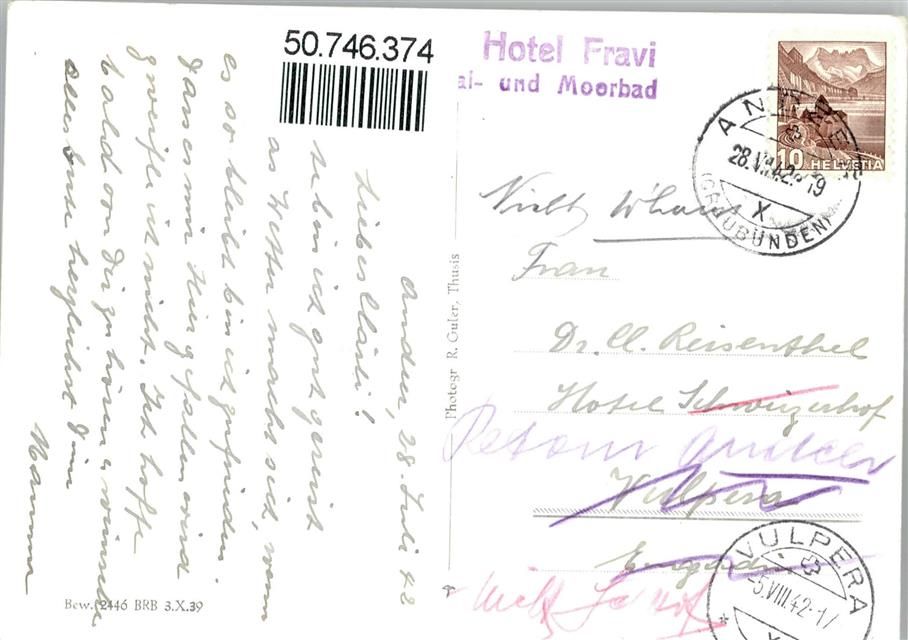 50.746.374
Hotel Fravi
al- und Moorbad
ANDEER
28.VII.42.-19
X
(GRAUBÜNDEN)
10 HELVETIA
Andeer, 28. Juli 42
Lieber Cläri!
Soeben ich gut gereist
das Wetter macht sich, wenn
es so bleibt bin ich zufrieden.
Dass es mir hier gefallen wird
zweifle ich nicht. Ich hoffe
bald von Dir zu hören u. wünsche
alles Gute herzlichst Deine
Mamma
Bew. 2446 BRB 3.X.39
Photogr R. Guler, Thusis
Nicht
Frau
Dr. Cl. Reisenthel
Hotel Schweizerhof
Retour Andeer
Vulpera
Engadin
Nicht
VULPERA
-5.VIII.42-17